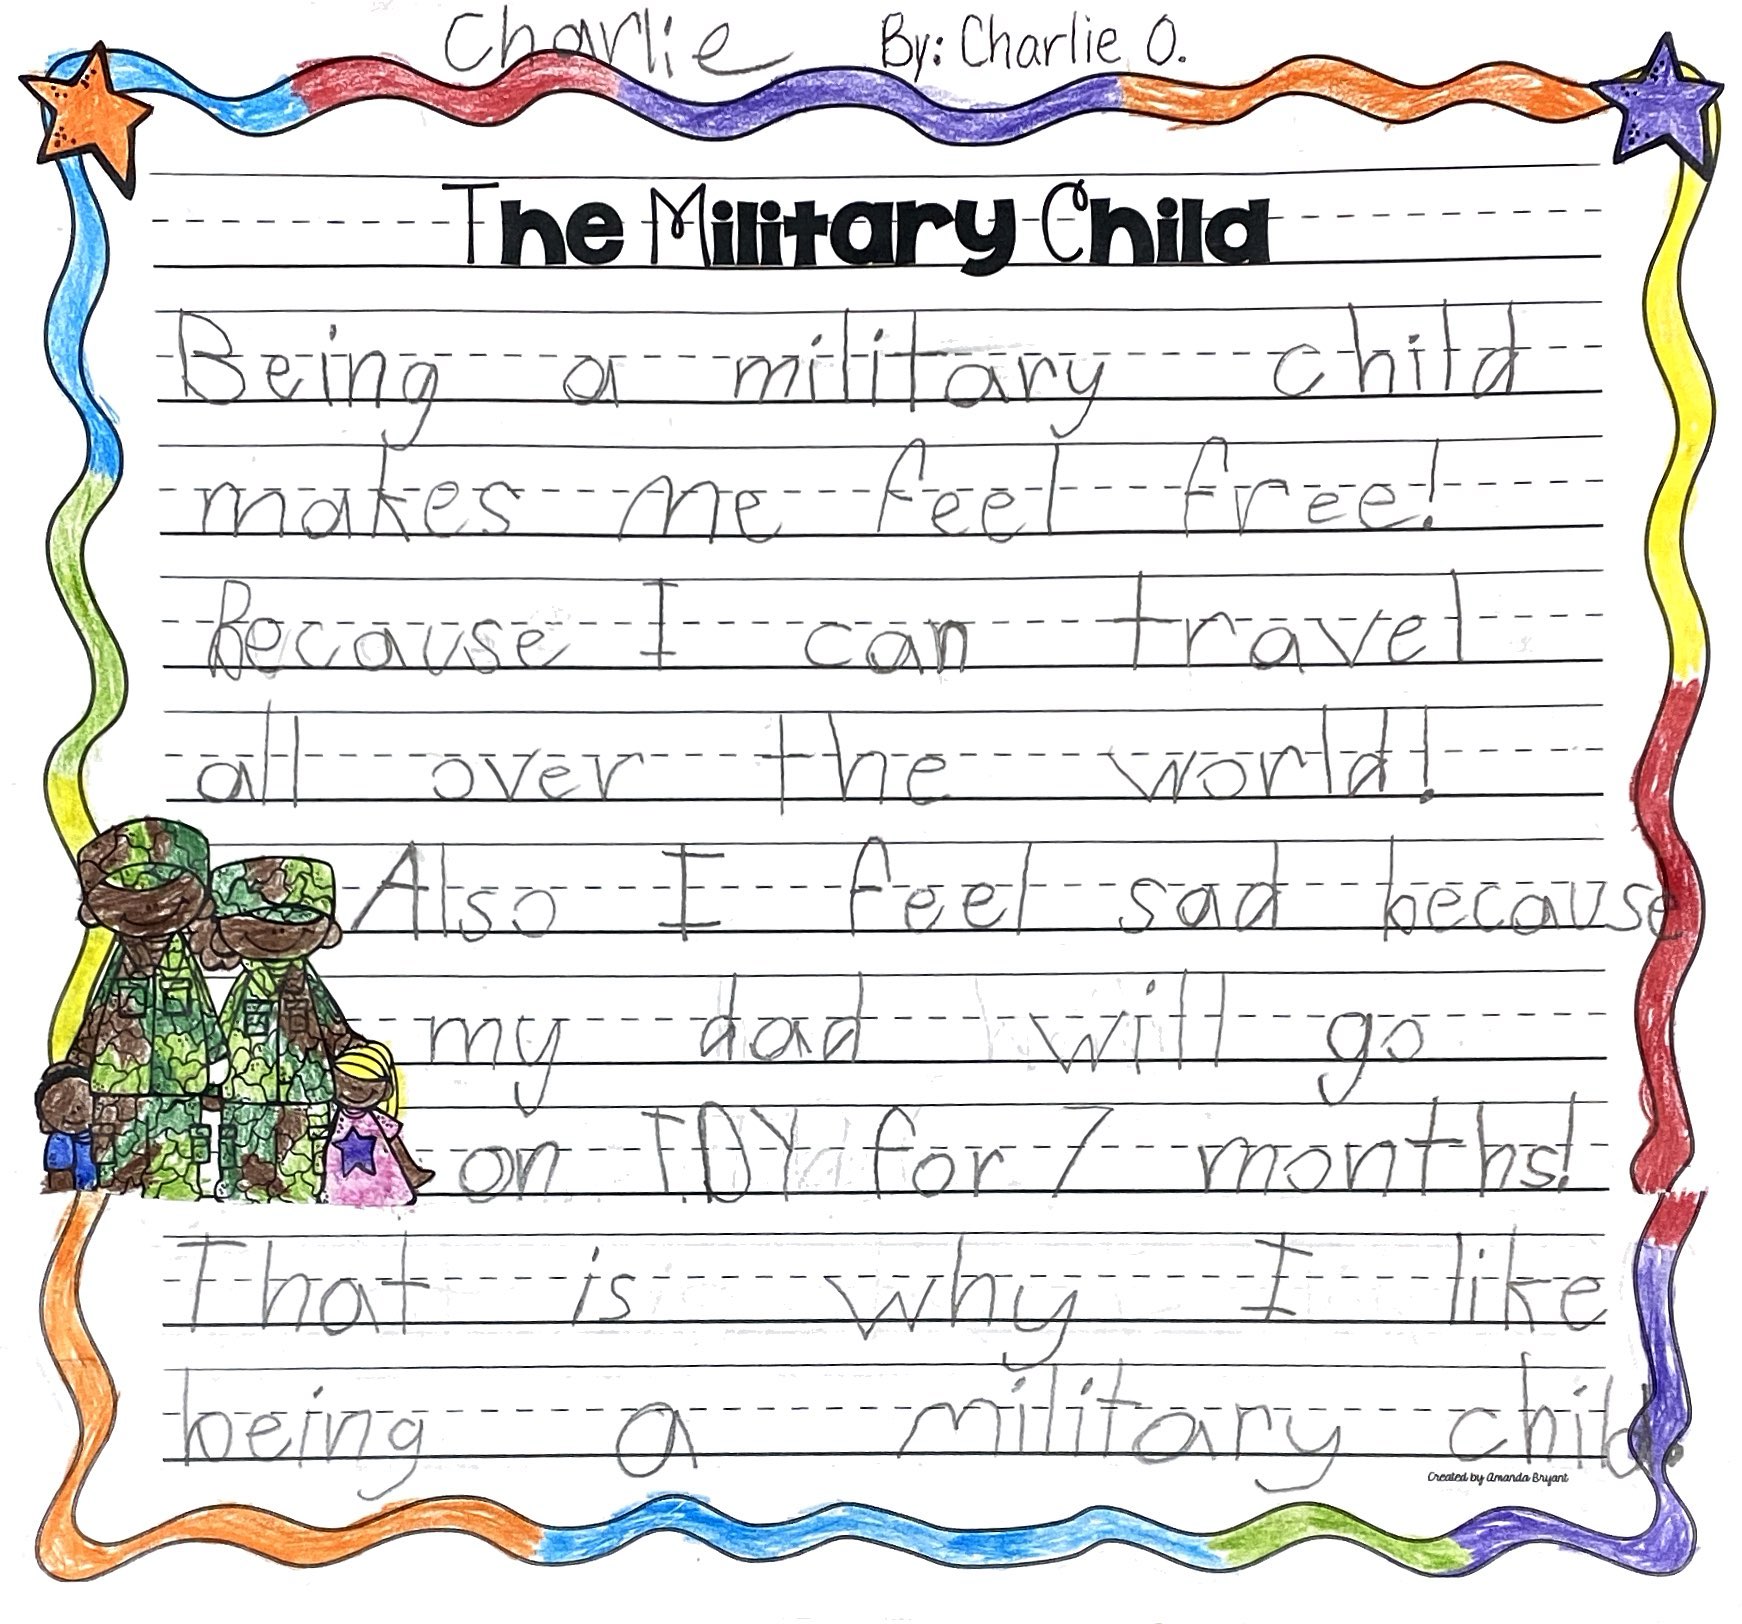 Charlie By: Charlie O.
The Military Child
Being a military child
makes me feel free!
Because I can travel
all over the world!
Also I feel sad because
my dad will go
on TDY for 7 months!
That is why I like
being a military child.
Created by Amanda Bryant